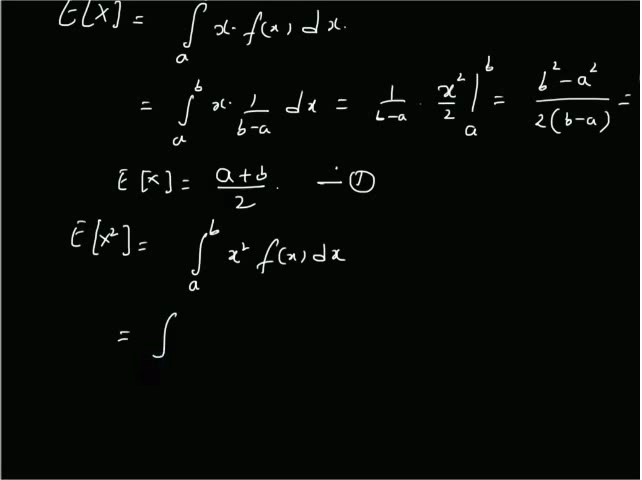 E[X] = ∫ₐ x. f(x) dx.
= ∫ₐᵇ x. 1/(b-a) dx = 1/(b-a) . x²/2 |ₐᵇ = (b² - a²)/(2(b-a)) =
E[X] = (a+b)/2. — ①
E[X²] = ∫ₐᵇ x² f(x) dx
= ∫